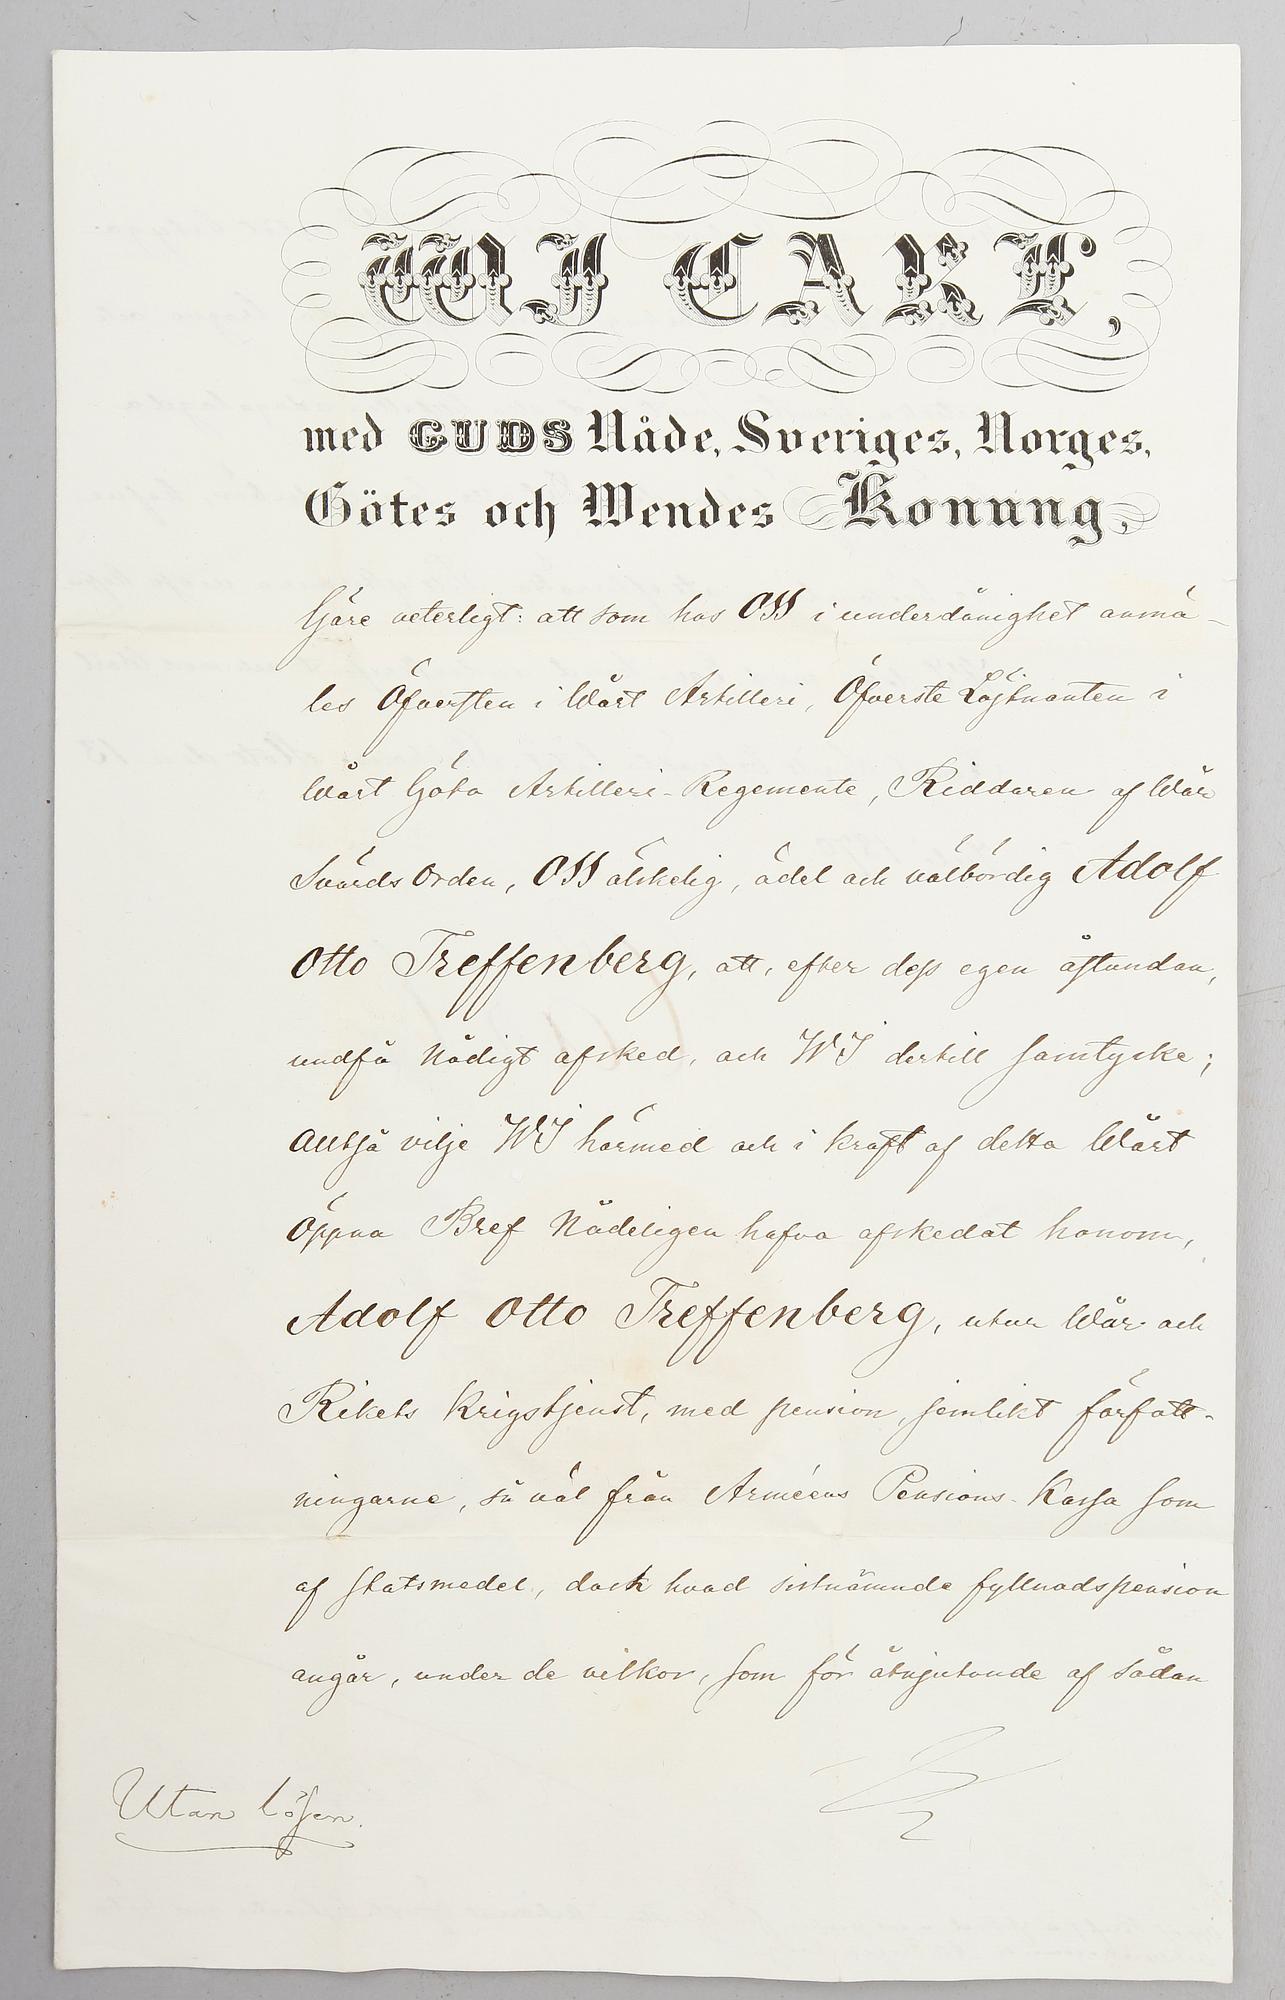 WJ CARL,
med GUDS Nåde, Sveriges, Norges,
Götes och Wendes Konung,
Göre veterligt: att som hos OSS i underdånighet anmä-
les Öfversten i Wårt Artilleri, Öfverste Löjtnanten i
Wårt Göta Artilleri-Regemente, Riddaren af Wår
Svärds Orden, OSS älskelig, ädel och välbördig Adolf
Otto Treffenberg, att, efter dess egen åstundan,
undfå Nådigt afsked, och WJ dertill samtycke;
Alltså vilje WJ härmed och i kraft af detta Wårt
Öppna Bref Nådeligen hafva afskedat honom,
Adolf Otto Treffenberg, utur Wår och
Rikets krigstjenst, med pension, jemlikt författ-
ningarne, så väl från Arméens Pensions-Kassa som
af statsmedel, dock hvad sistnämnde fyllnadspension
angår, under de vilkor, som för åtnjutande af sådan
Utan lösen.